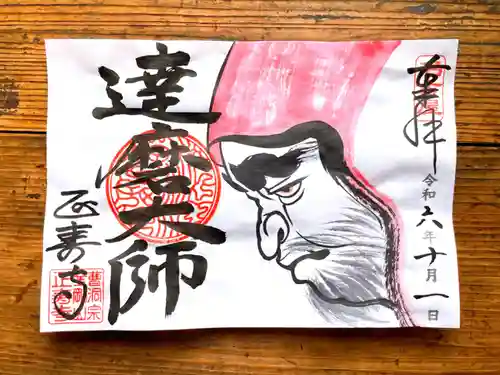 奉拝
令和六年十月一日
達磨大師
正寿寺
曹洞宗